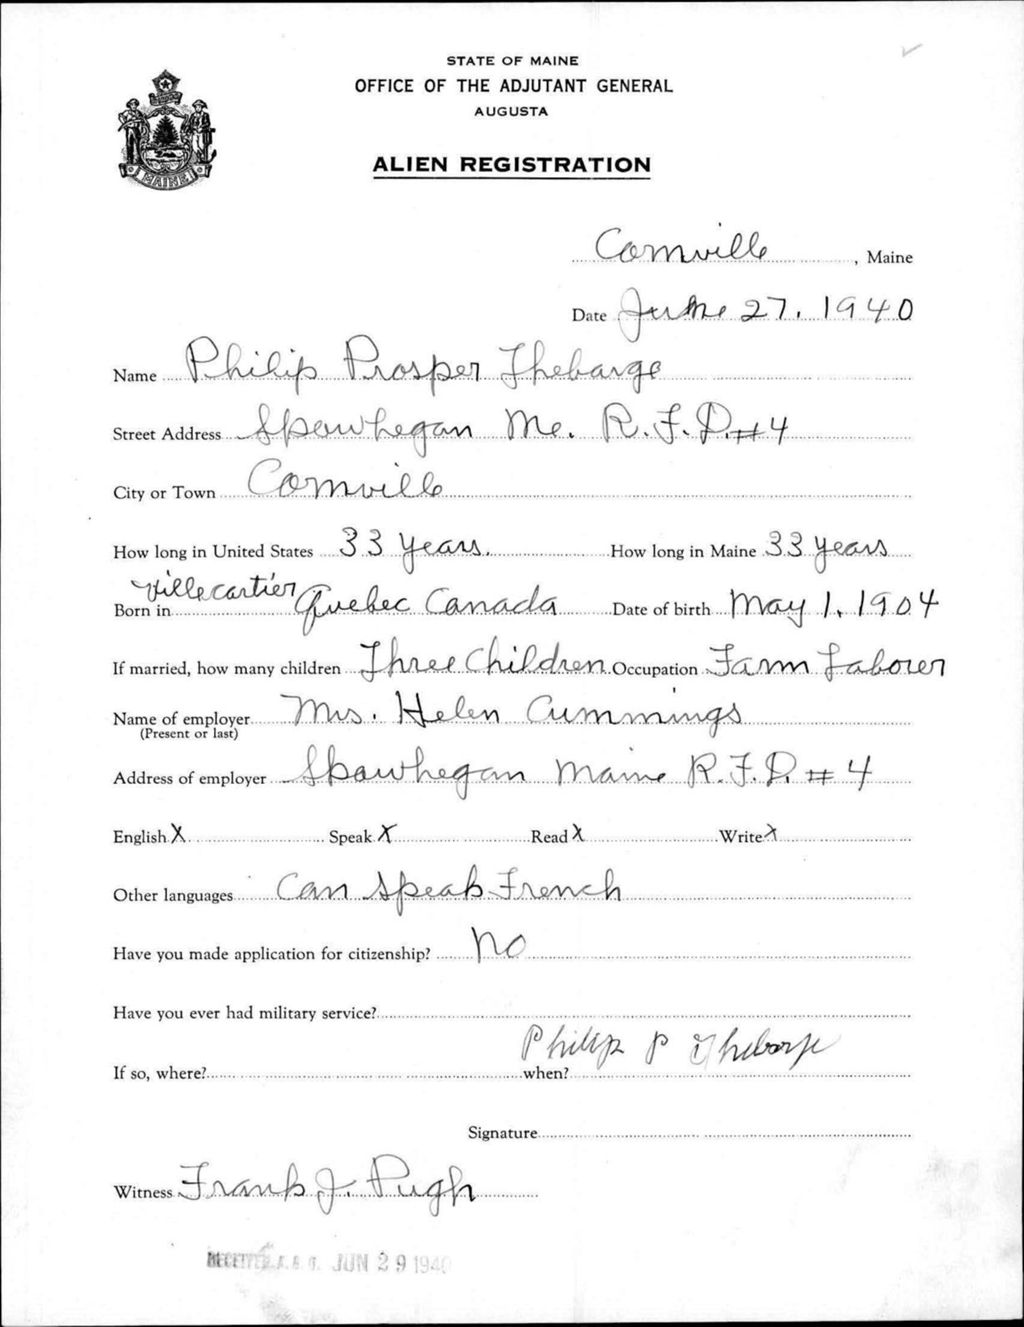 STATE OF MAINE
OFFICE OF THE ADJUTANT GENERAL
AUGUSTA
ALIEN REGISTRATION
MAINE
Cornville, Maine
Date June 27, 1940
Name Philip Prosper Thebarge
Street Address Skowhegan Me. R.F.D. #4
City or Town Cornville
How long in United States 33 years. How long in Maine 33 years
Born in Villecartier Quebec Canada Date of birth May 1, 1904
If married, how many children Three Children Occupation Farm Laborer
Name of employer Mrs. Helen Cummings
(Present or last)
Address of employer Skowhegan Maine R.F.D. #4
English X Speak X Read X Write X
Other languages Can Speak French
Have you made application for citizenship? No
Have you ever had military service?
Philip P Thebarge
If so, where? when?
Signature
Witness Frank J. Pugh
JUN 29 1940